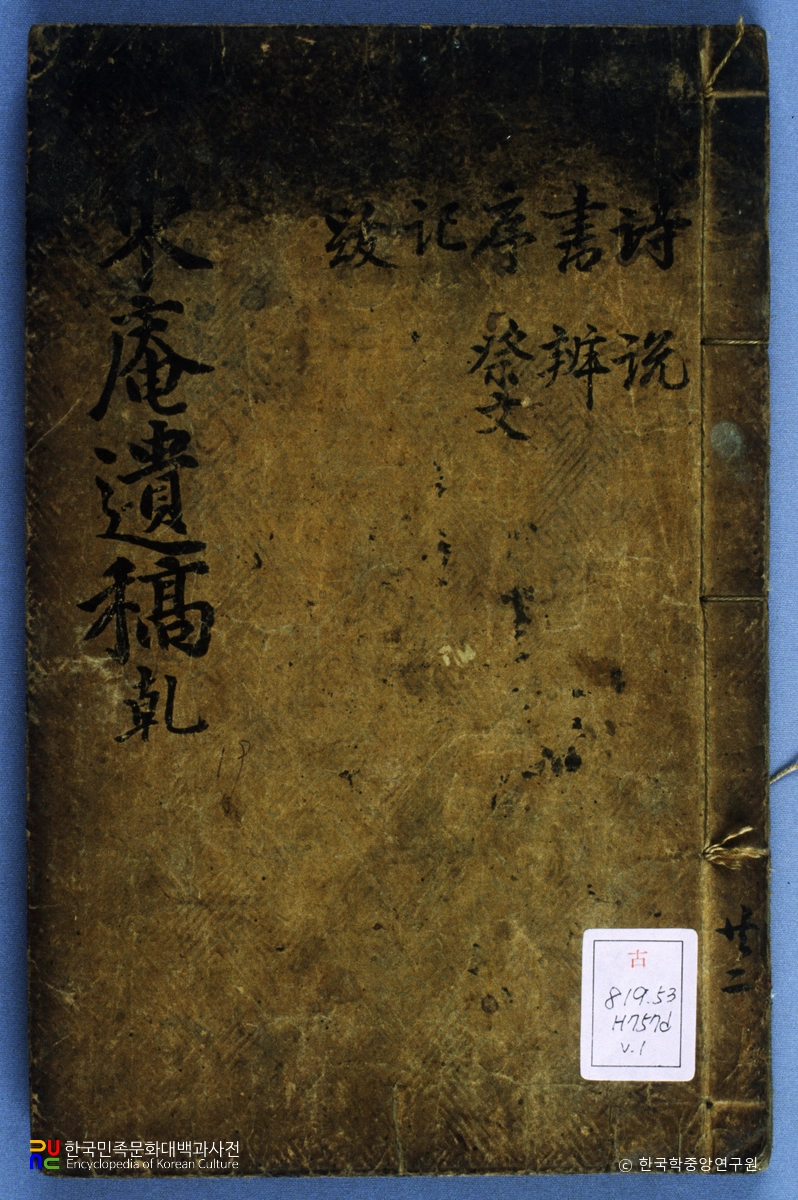 庵遺稿 乾
詩 書 序 记 跋
说 辨 祭文
共二
古
819.53
H757d
v.1
한국민족문화대백과사전
Encyclopedia of Korean Culture
© 한국학중앙연구원